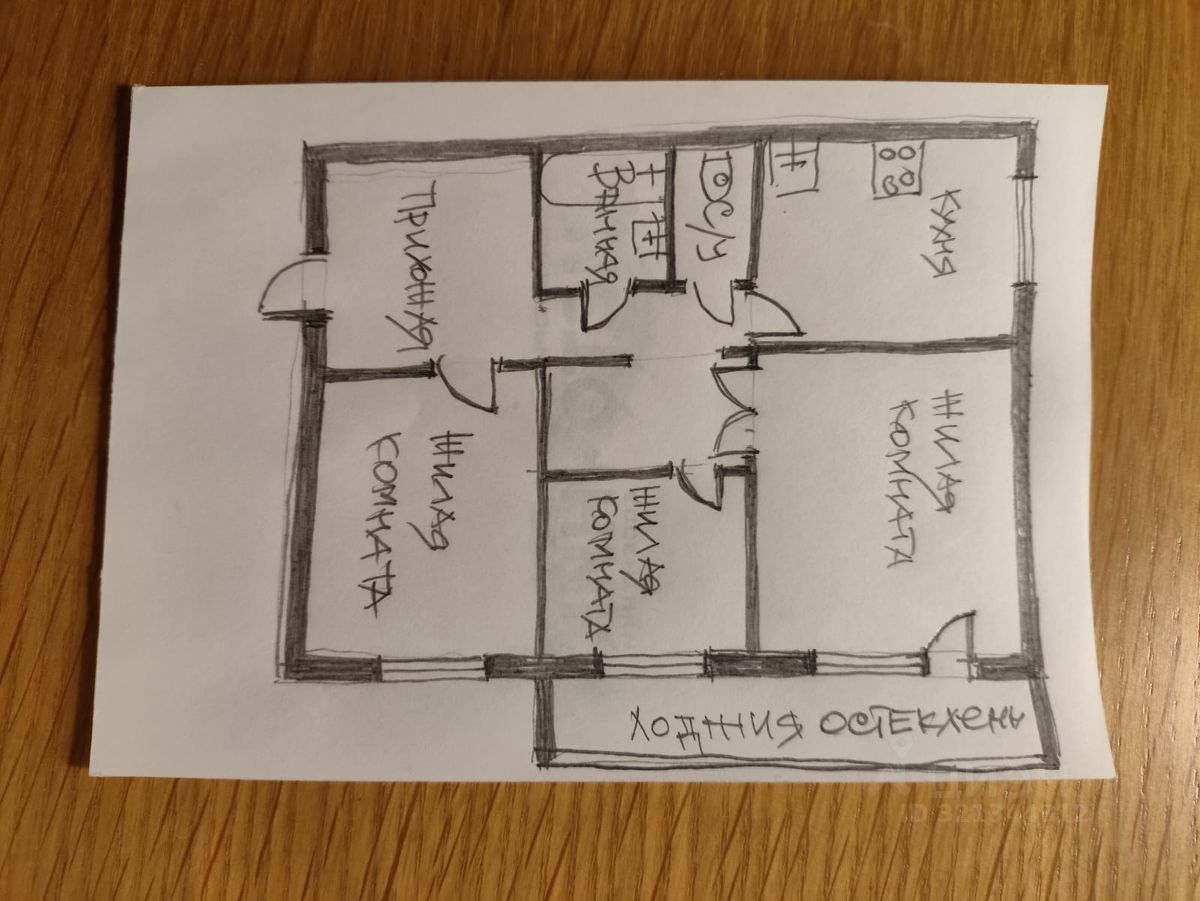 ПРИХОЖАЯ
ВАННАЯ
С/У
КУХНЯ
ЖИЛАЯ
КОМНАТА
ЖИЛАЯ
КОМНАТА
ЖИЛАЯ
КОМНАТА
ЛОДЖИЯ ОСТЕКЛЕНА